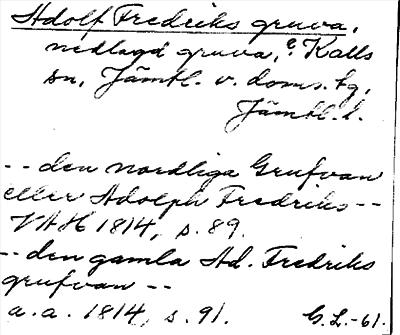 Adolf Fredriks gruva,
nedlagd gruva, i Kalls
sn, Jämtl. v. doms. tg,
Jämtl. l.
-- den nordliga Grufvan
eller Adolph Fredriks --
VAH 1814, s. 89.
-- den gamla Ad. Fredriks
grufvan --
a. a. 1814, s. 91. G. L. -61.